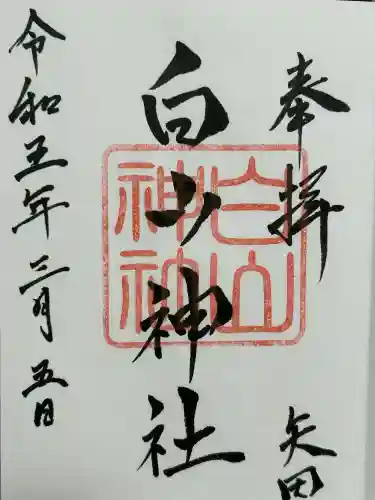 奉拝
矢田
白山神社
白山神社
令和五年三月五日